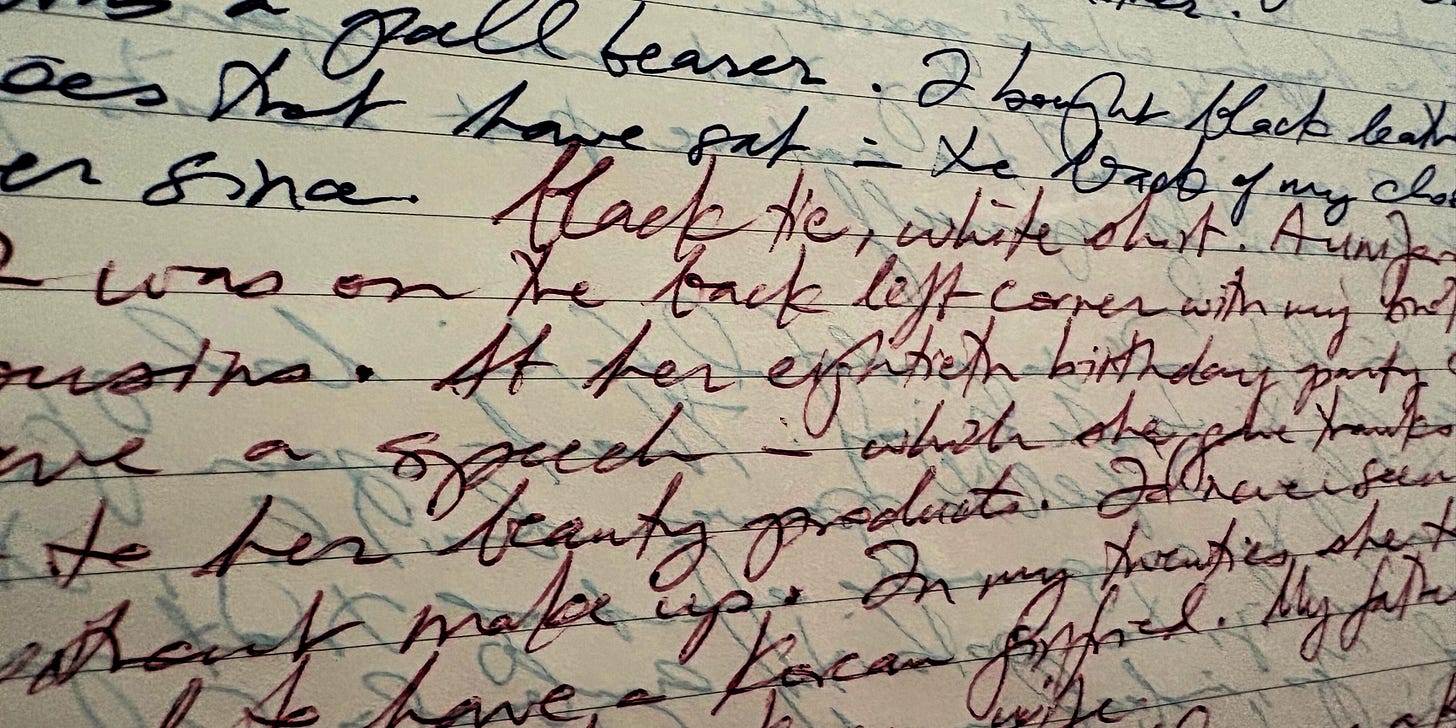 a pall bearer. I bought black leath
oes that have sat in the back of my clos
er since. Black tie, white shirt.
I was on the back left corner with my
ousins. At her eightieth birthday party
ve a speech in which she gave thanks
to her beauty products. I'd never seen
without make up. In my twenties she
to have a Korean girlfriend. My fath
wife